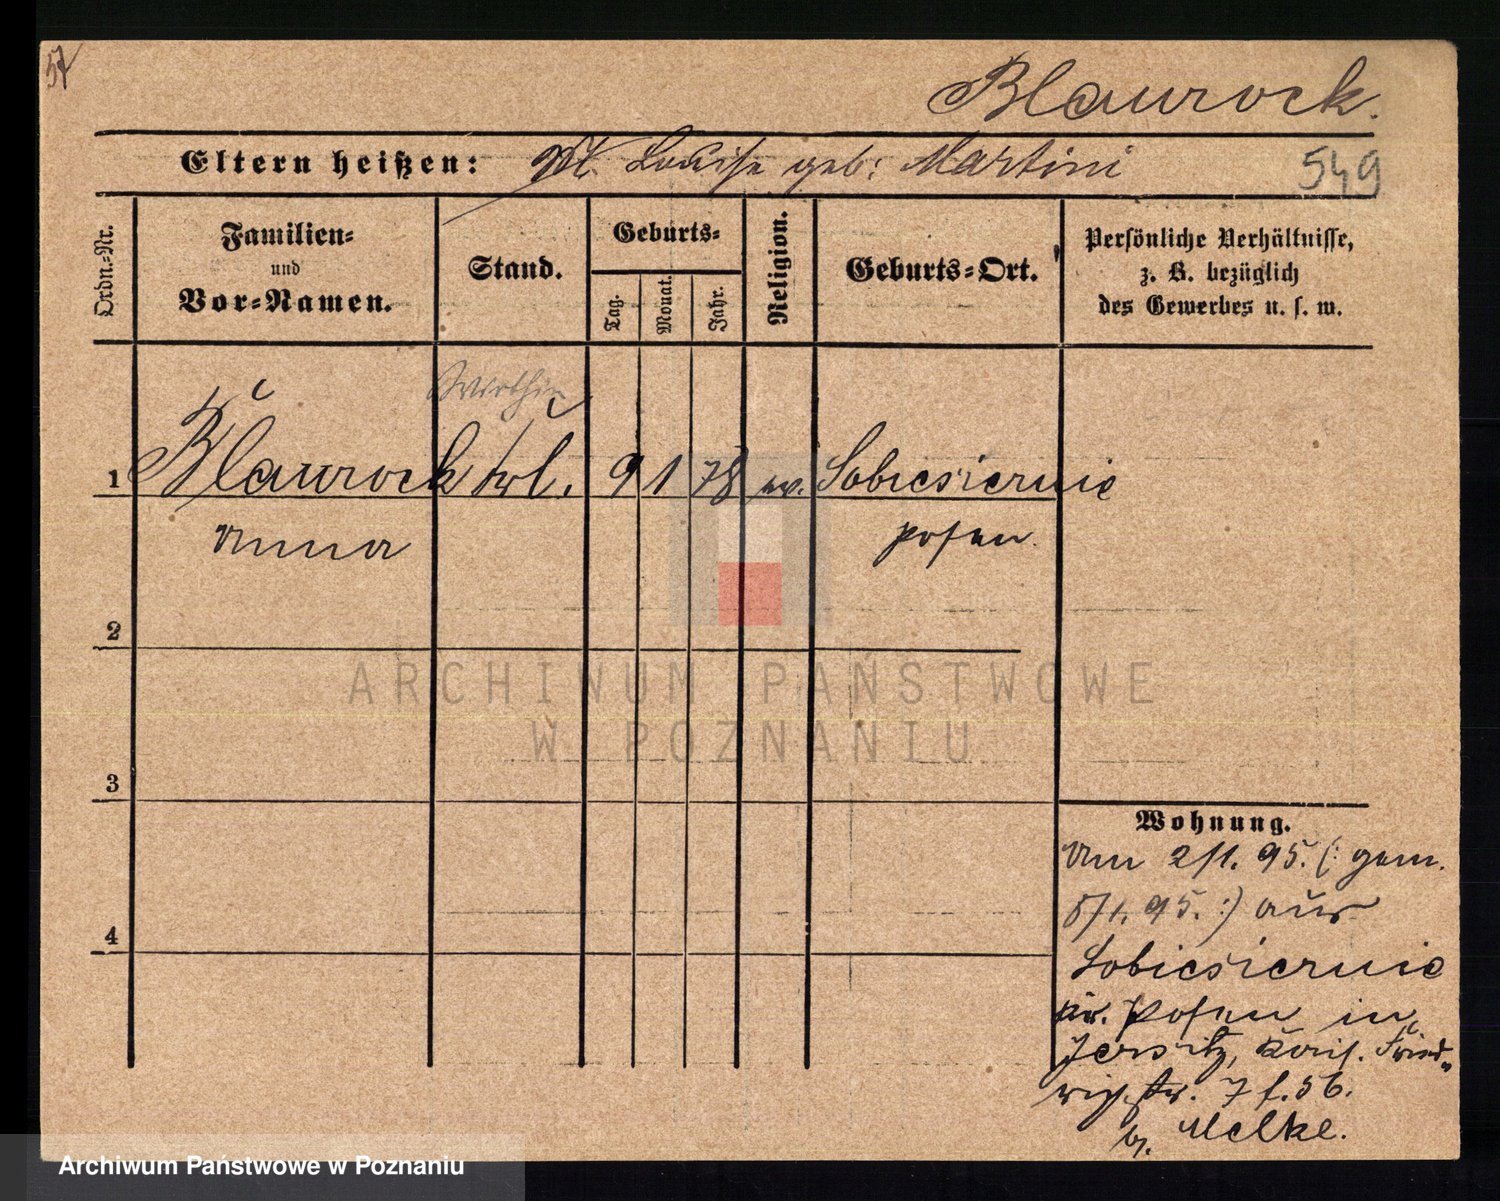 57
Blaurock.
Eltern heißen: Louise geb: Martini
549
Ordn.-Nr.
Familien-
und
Vor-Namen.
Stand.
Geburts-
Tag.
Monat.
Jahr.
Religion.
Geburts-Ort.
Persönliche Verhältnisse,
z. B. bezüglich
des Gewerbes u. s. w.
Wirthin
1 Blaurock 9 1 78 ev. Sobiesiernie
Anna Posen.
2
3
4
Wohnung.
Am 2/1. 95. (: gem.
5/1. 95. :) aus
Sobiesiernie
Kr. Posen in
Jersitz, Kais. Fried-
richstr. 7 f. 56.
b. Melke.
ARCHIWUM PAŃSTWOWE
W POZNANIU
Archiwum Państwowe w Poznaniu